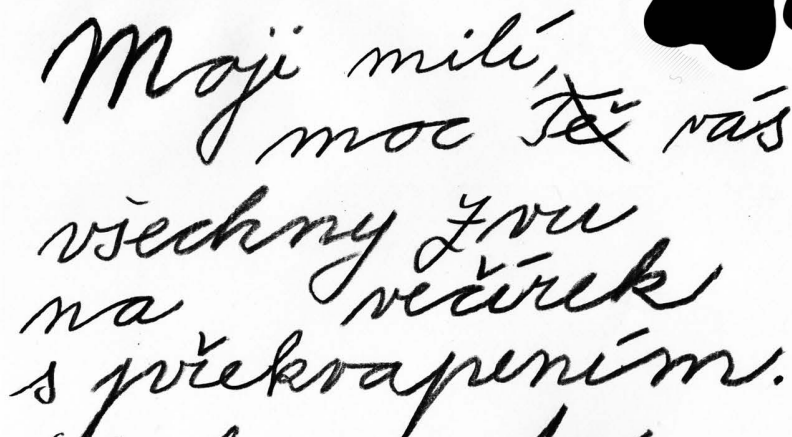 Moji milí,
moc vás
všechny zvu
na večírek
s překvapením.